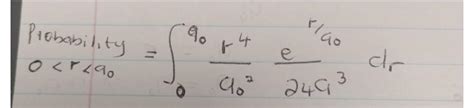 Probability
0 < r < a₀ = ∫₀^a₀ r⁴/a₀² e^(r/a₀)/24a³ dr